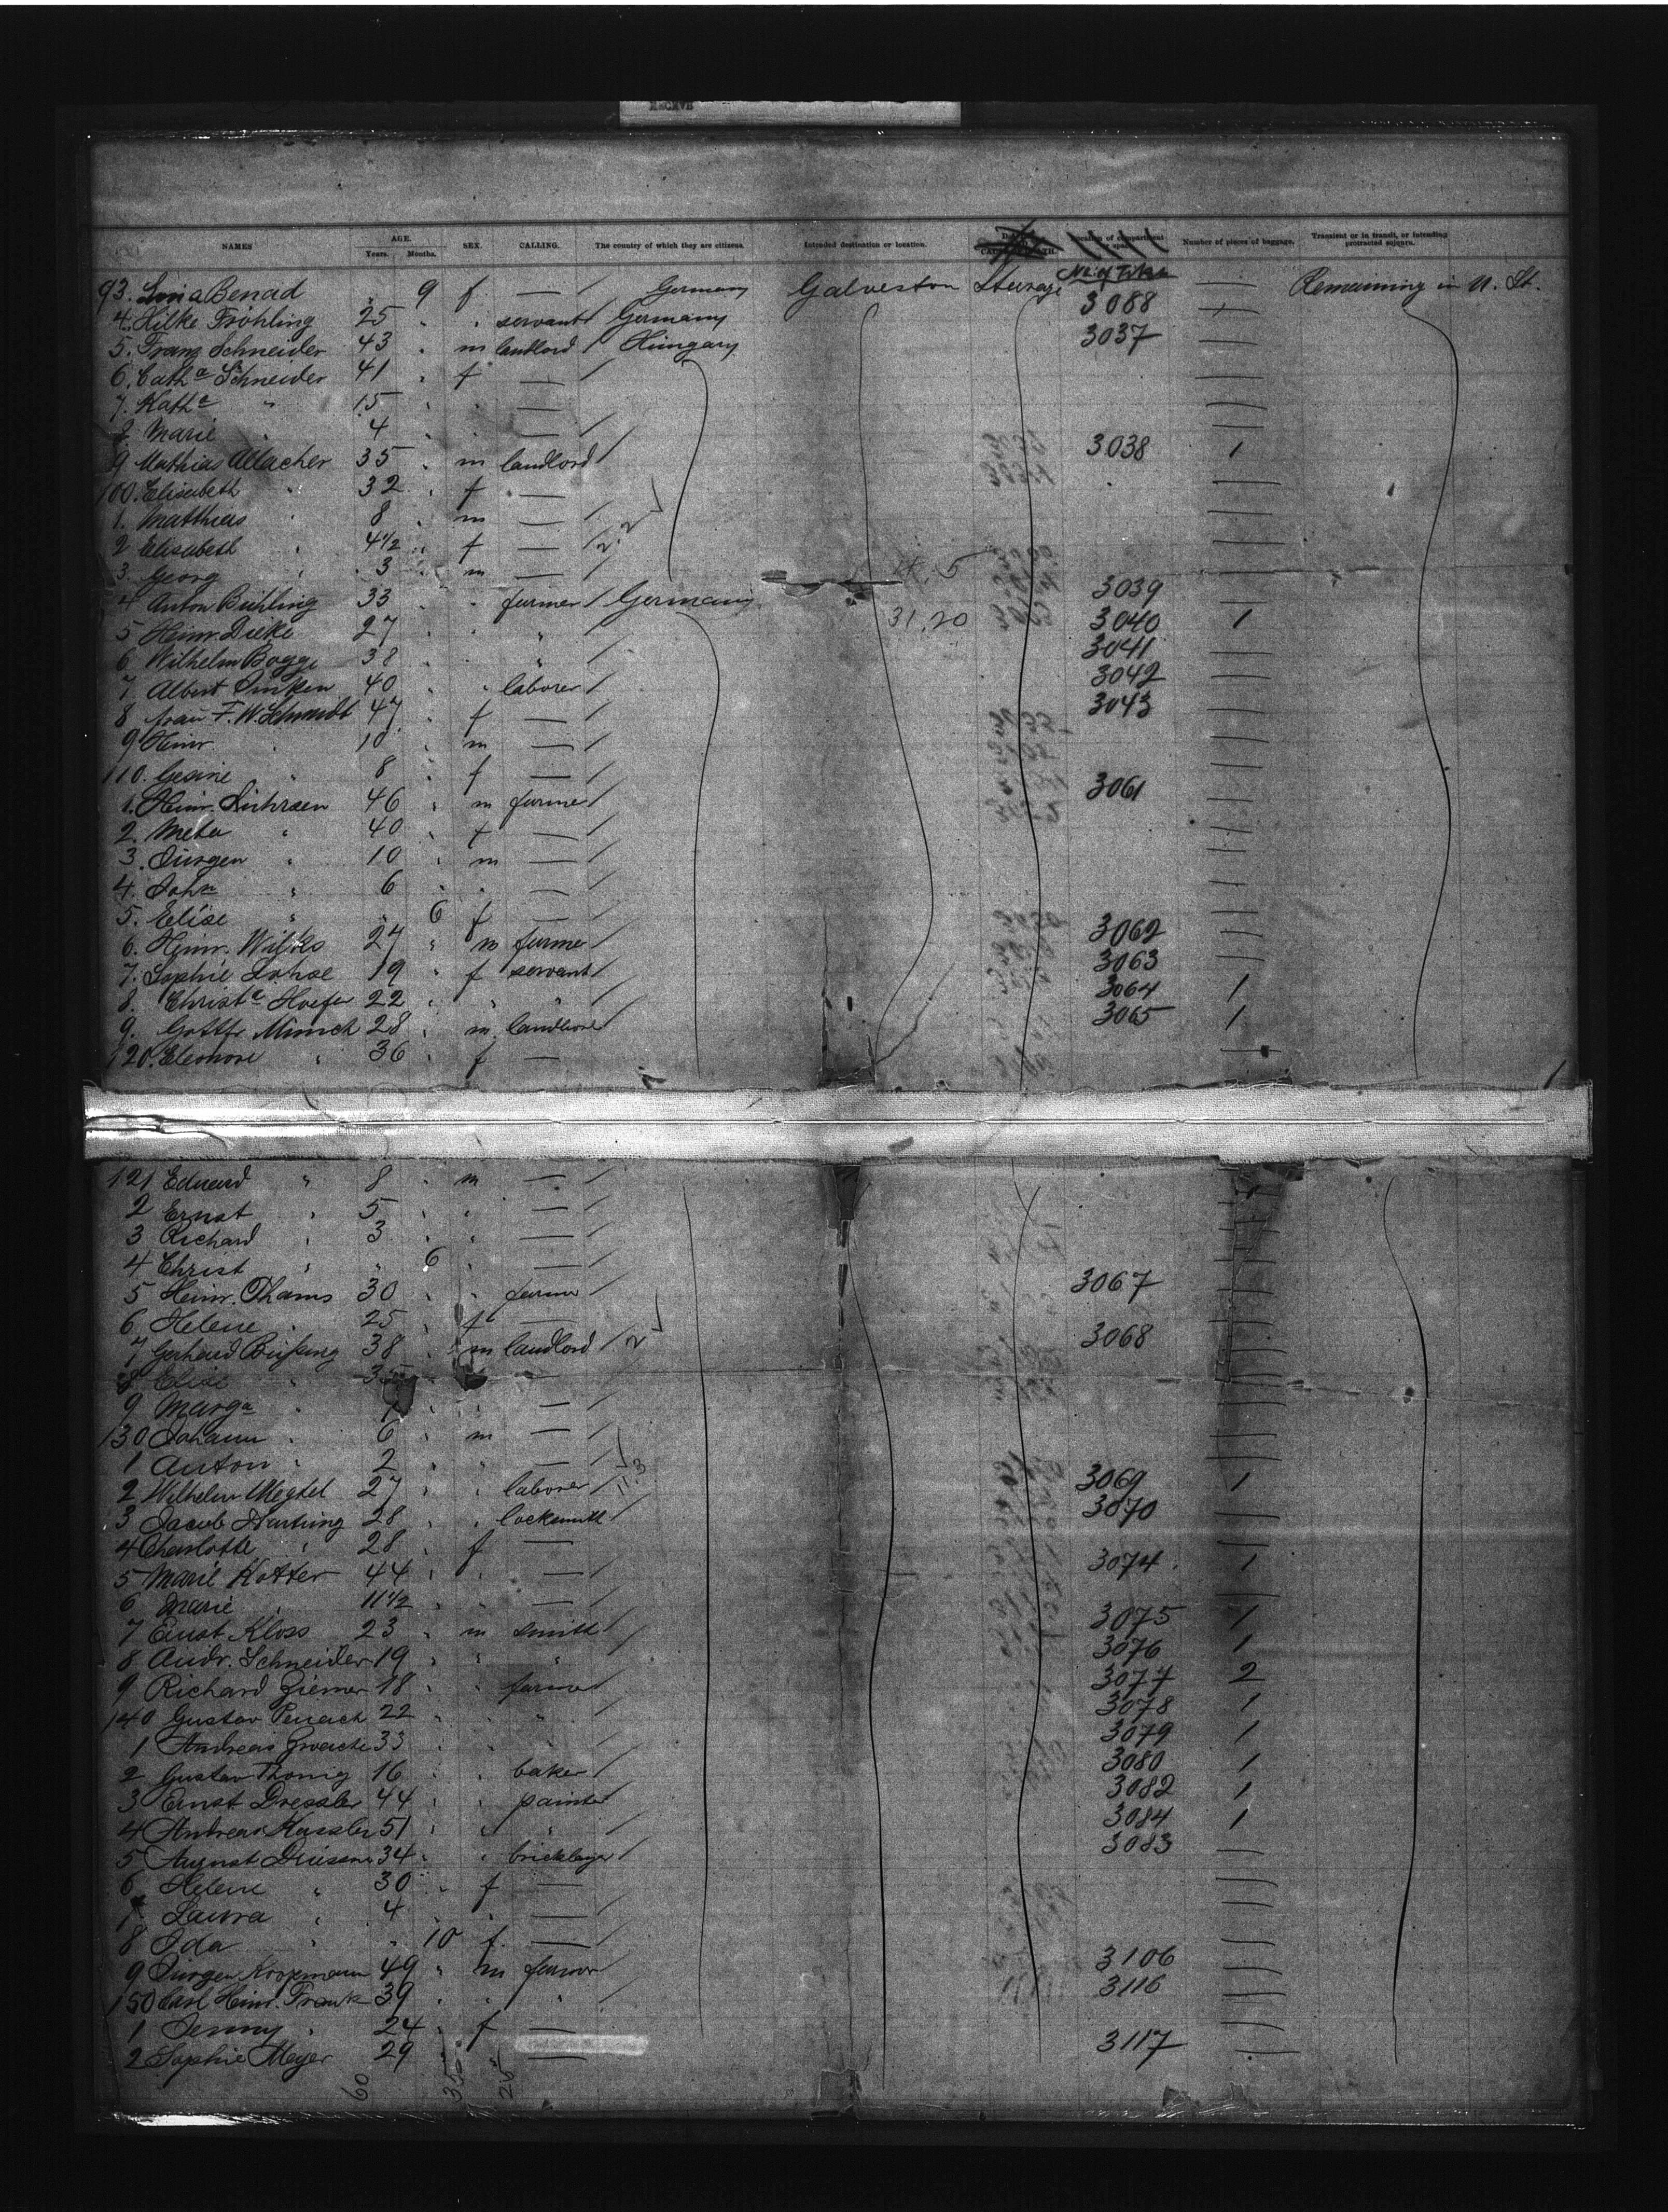 NAMES AGE. Years. Months. SEX. CALLING. The country of which they are citizens. Intended destination or location. Location of compartment or space Number of pieces of baggage. Transient or in transit, or intending protracted sojourn.
No of Ticket
93. Benad " 9 f — Germany Galveston Steerage 3088 — Remaining in U. St.
4. Hilke Fröhling 25 " " servant / Germany
5. Franz Schneider 43 " m landlord / Hungary 3037 —
6. Cath a Schneider 41 " f — / —
7. Kath a " 15 " " — —
8 Marie " 4 " " — / —
9 Mathias Allacher 35 " m landlord / 3038 1
100. Elisabeth " 32 " f — —
1. Matthias " 8 " m — / —
2 Elisabeth " 4½ " f — / —
3. Georg " 3 " m — / —
4 Anton Bühling 33 " " farmer / Germany 3039 —
5 Heinr. Dieke 27 " " " / 31.20 3040 1
6 Wilhelm Bogge 38 " " " / 3041 —
7 Albert 40 " " laborer / 3042 —
8 frau F. W. Schmidt 47 " f — / 3043 —
9 Heinr. " 10 " m — / —
110. Gesine " 8 " f — / —
1. Heinr. Lührsen 46 " m farmer / 3061 —
2. Meta " 40 " f — / —
3. Jürgen " 10 " m — / —
4. John " 6 " " — / —
5. Elise " " 6 f — / —
6. Heinr. Wilkes 27 " m farmer / 3062 —
7. Sophie Lohse 19 " f servant / 3063 —
8. Christ a Hoefer 22 " " " / 3064 1
9. Gottfr Münch 28 " m landlord / 3065 1
120. Eleonore " 36 " f — —
121 Eduard " 8 " m — / —
2 Ernst " 5 " " — / —
3 Richard " 3 " " — / —
4 Christ " " 6 " — / —
5 Heinr. Thams 30 " " farmer / 3067 —
6 Helene " 25 " f — —
7 Gerhard Büssing 38 " m landlord / 3068 —
8 Elise " 35 " " — —
9 Marga " " " — / —
130 Johann " 6 " m — / —
1 Anton " 2 " " — / —
2 Wilhelm 27 " " laborer / 3069 1
3 Jacob Hartung 28 " " locksmith / 3070 —
4 Charlotte " 28 " f — —
5 Marie Kotter 44 " " — / 3074 1
6 Marie " 11½ " " — / —
7 Ernst Kloss 23 " m smith / 3075 1
8 Andr. Schneider 19 " " " / 3076 1
9 Richard Ziemer 18 " " farmer / 3077 2
140 Gustav 22 " " " / 3078 1
1 Andreas 33 " " " / 3079 1
2 Gustav Thonig 16 " " baker / 3080 1
3 Ernst Dressler 44 " " painter / 3082 1
4 Andreas Kassler 51 " " " / 3084 1
5 August 34 " " bricklayer / 3083 —
6 Helene " 30 " f — —
7 Laura " 4 " " — / —
8 Ida " " 10 f — / —
9 Jürgen Koopmann 49 " m farmer / 3106 —
150 Carl Heinr. Frank 39 " " " / 3116 —
1 Jenny " 24 " f — —
2 Sophie Meyer 29 " " — 3117 —
60 35 25